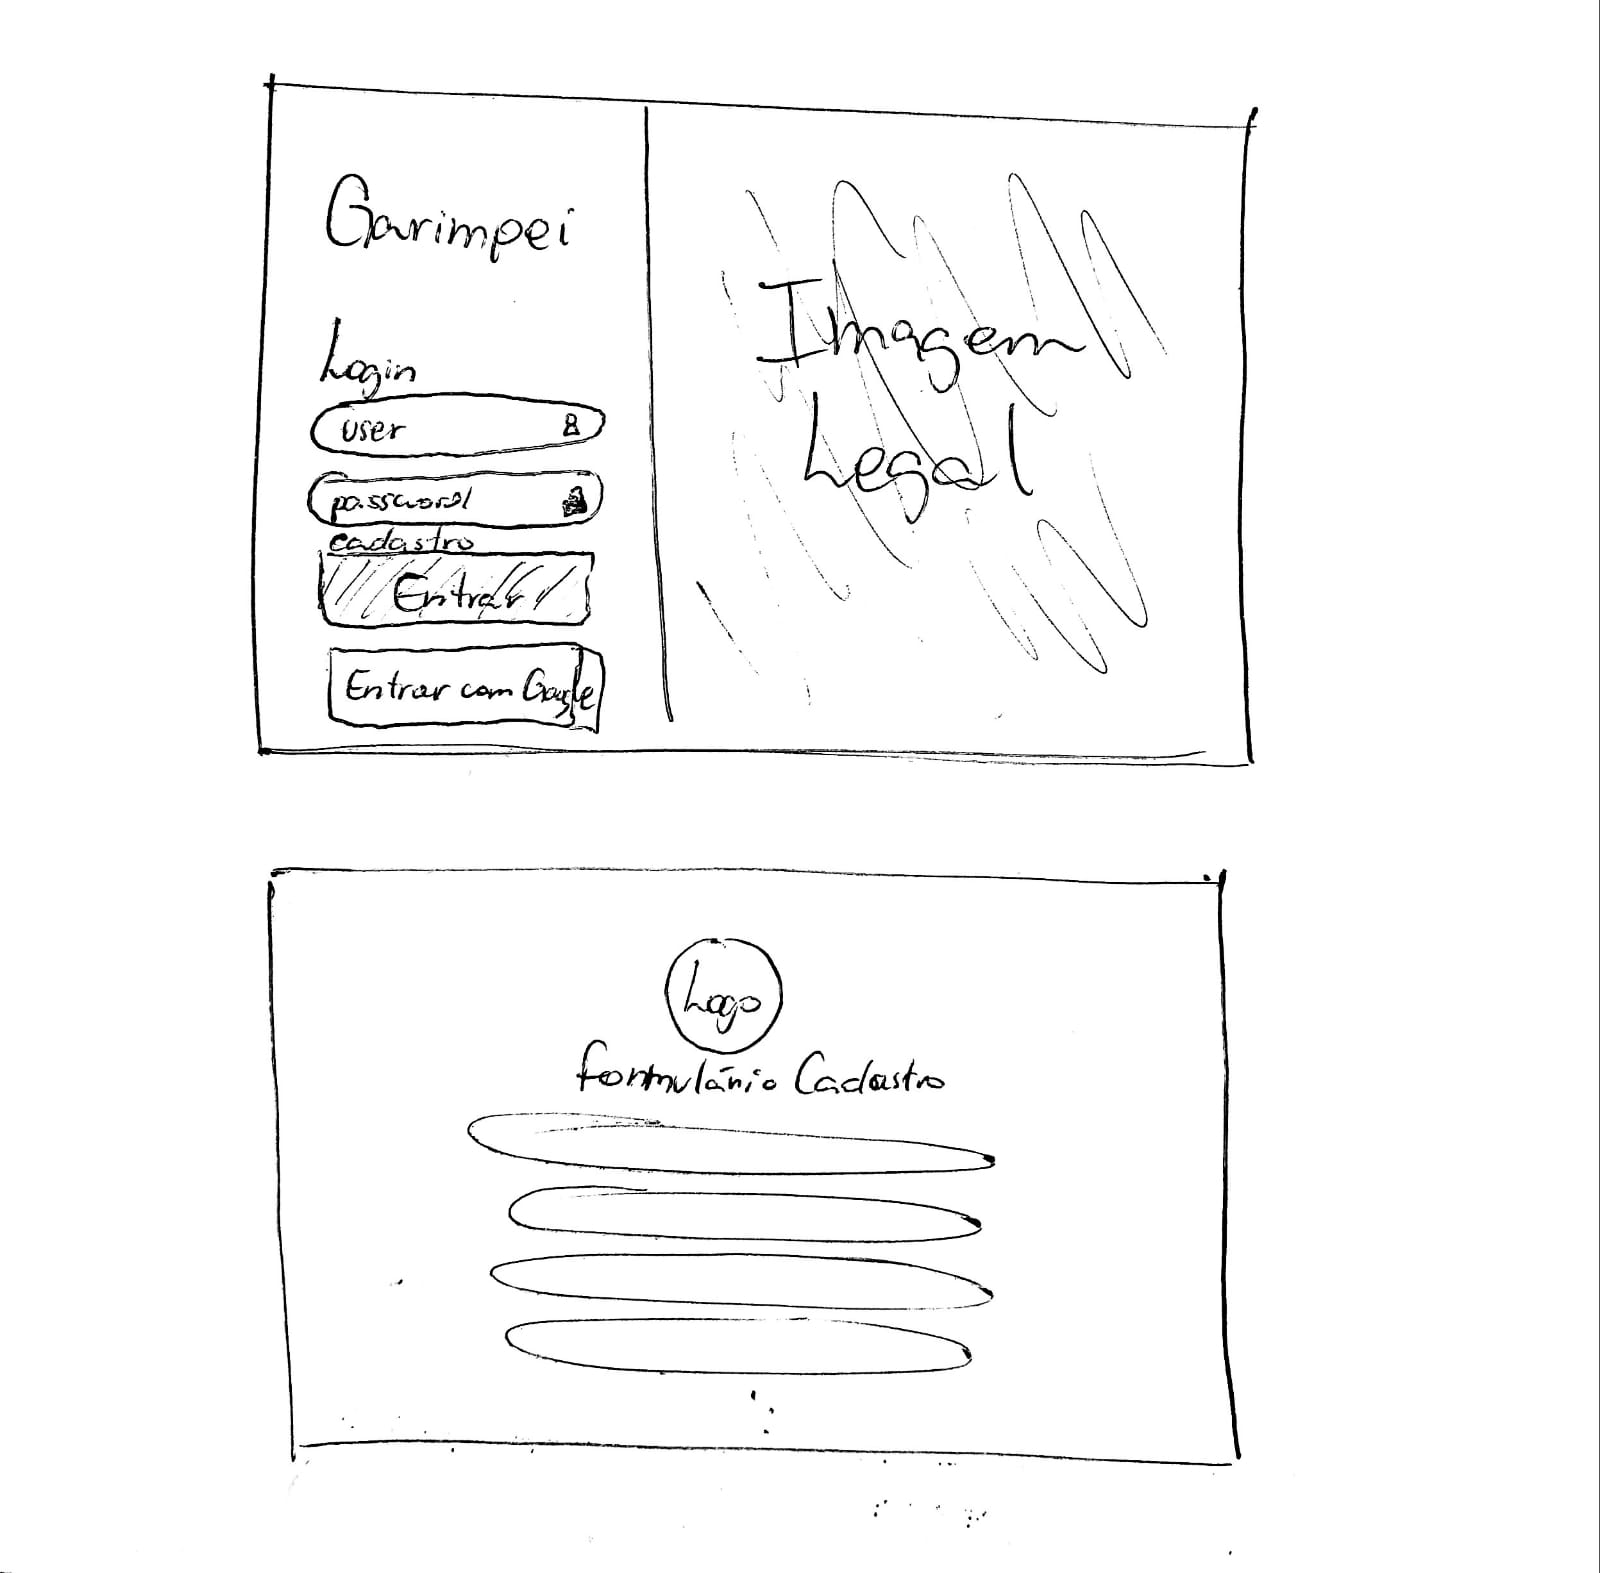 Garimpei
Login
user
password
cadastro
Entrar
Entrar com Google
Imagem
Legal
Logo
Formulário Cadastro